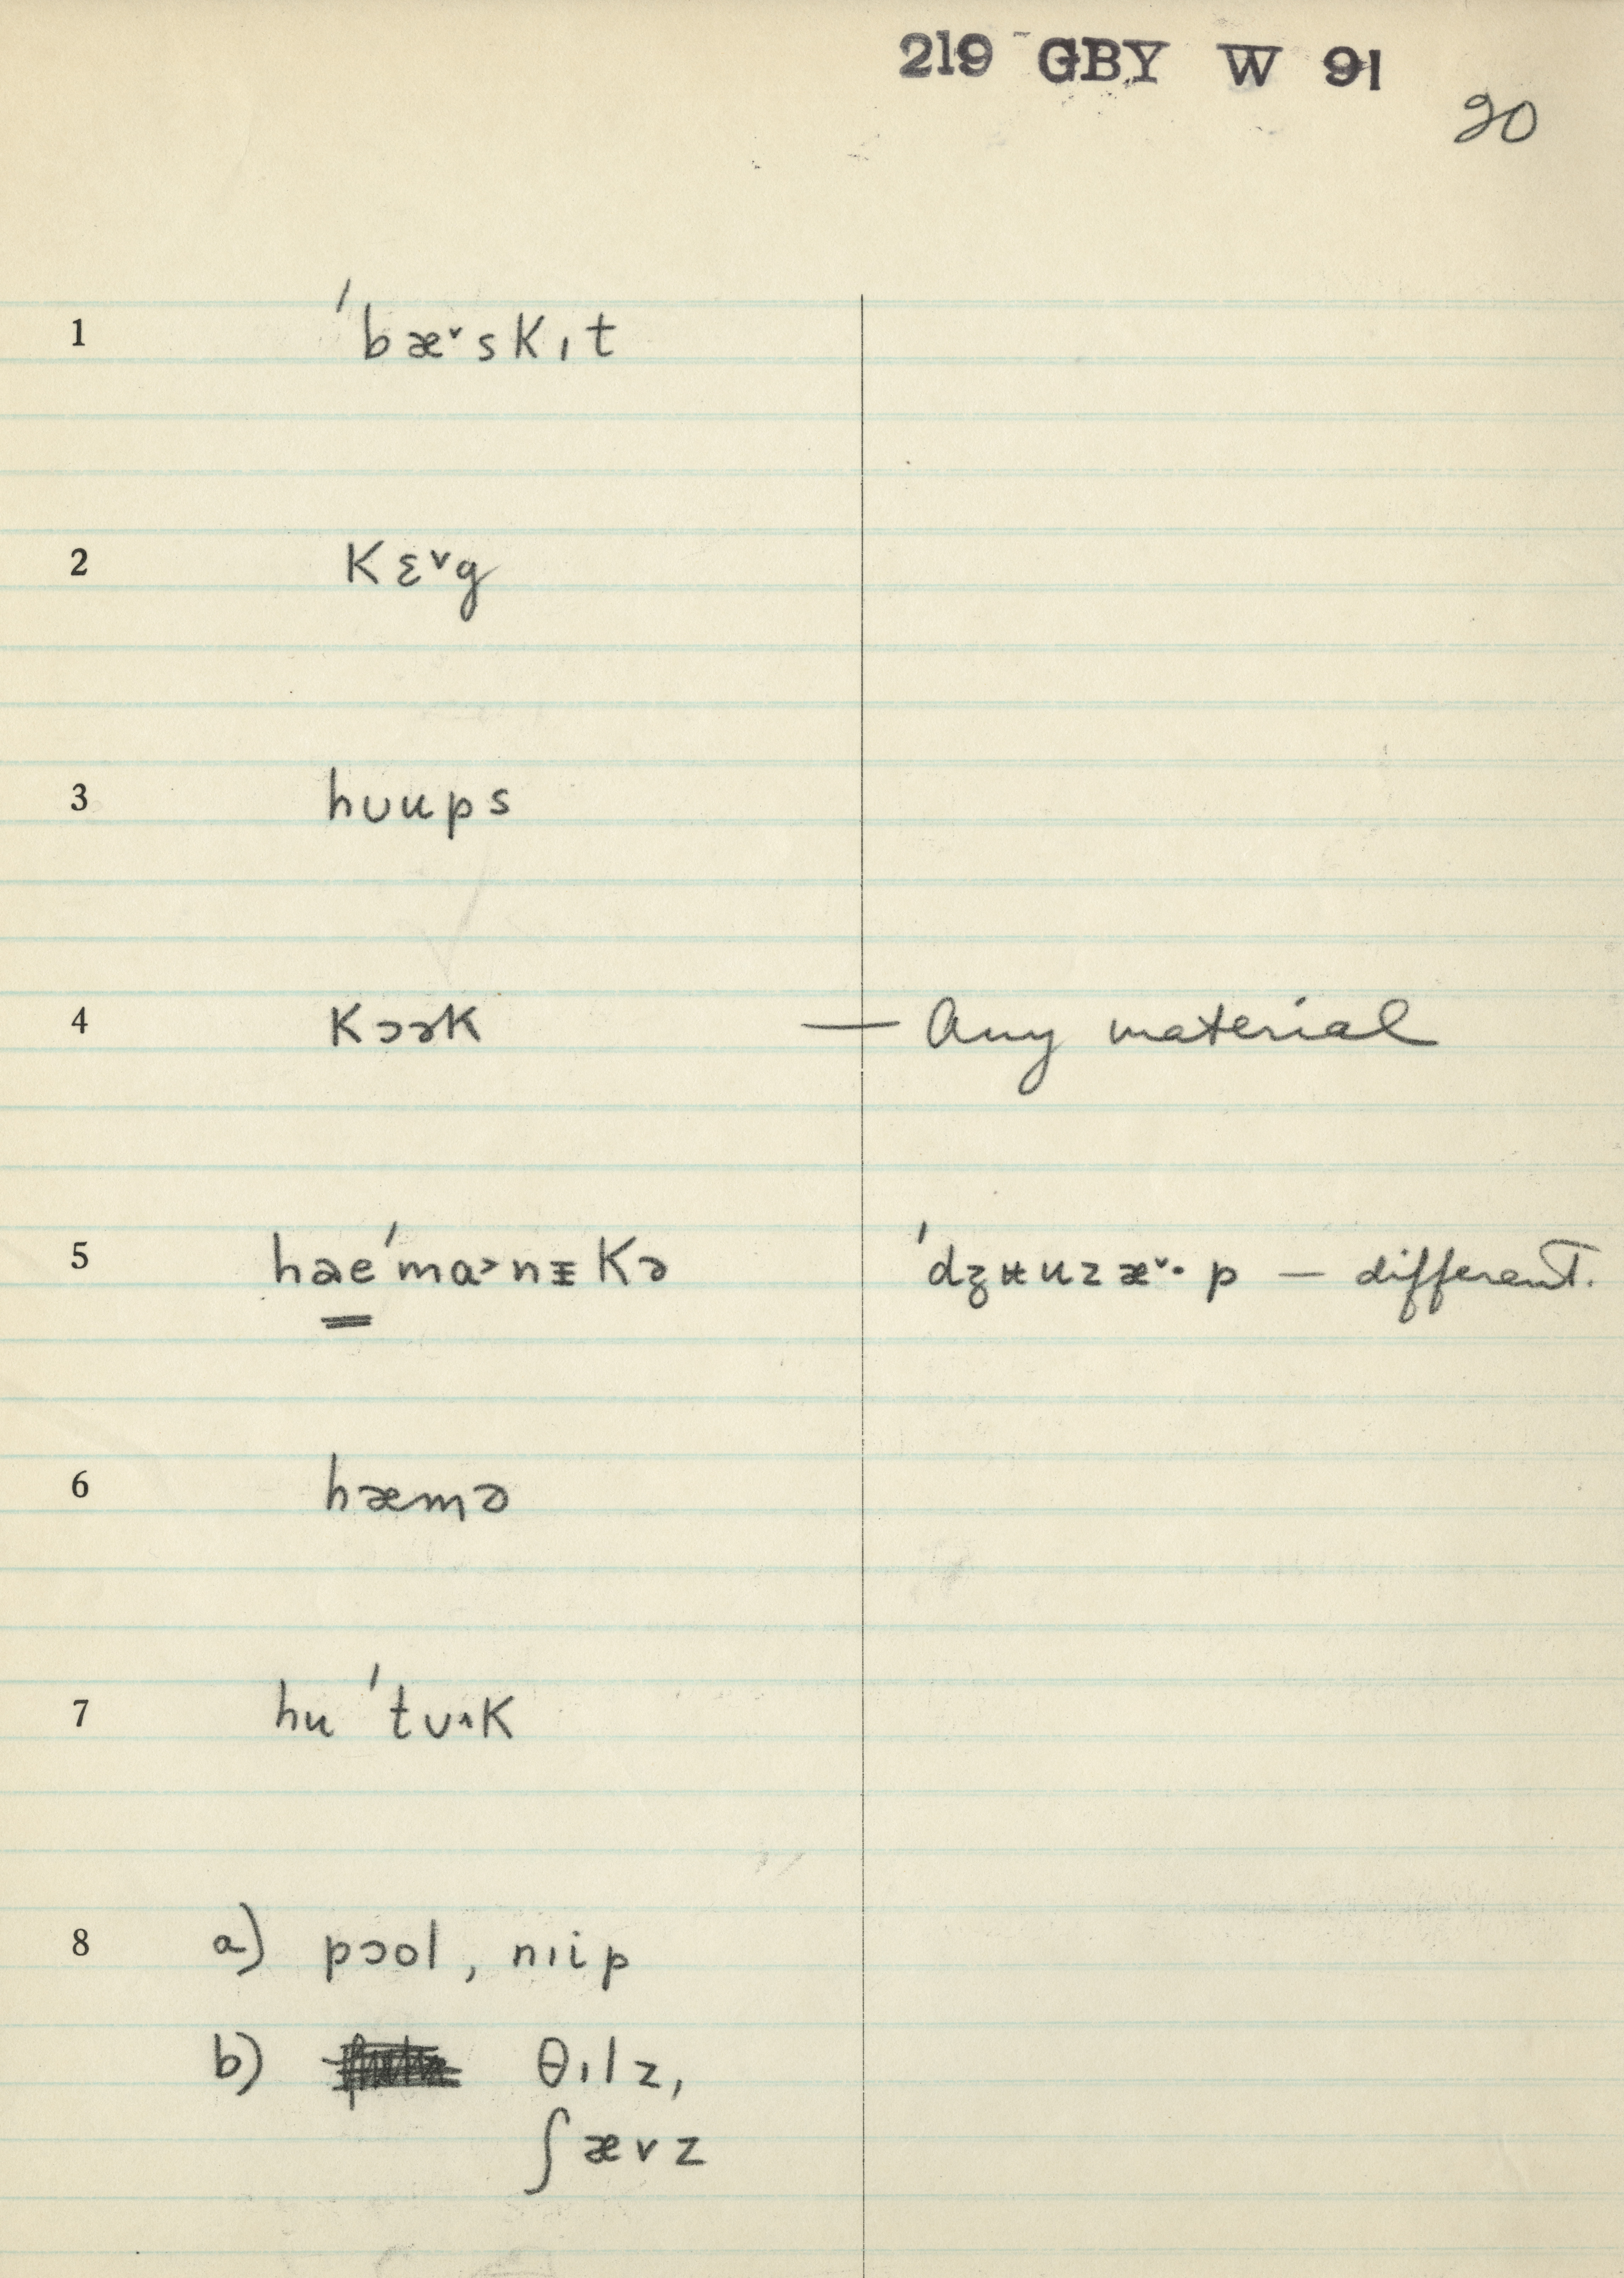 219 GBY W 91
20
1 ˈbæ˅skɪt
2 kɛ˅g
3 hʊups
4 kɔɚk — Any material
5 haeˈmɑ˃nᵻkə ˈdʒʉuzæ˅· p — different.
6 hæmə
7 huˈtʊ˄k
8 a) pɔol, nɪip
b) θɪlz,
ʃævz